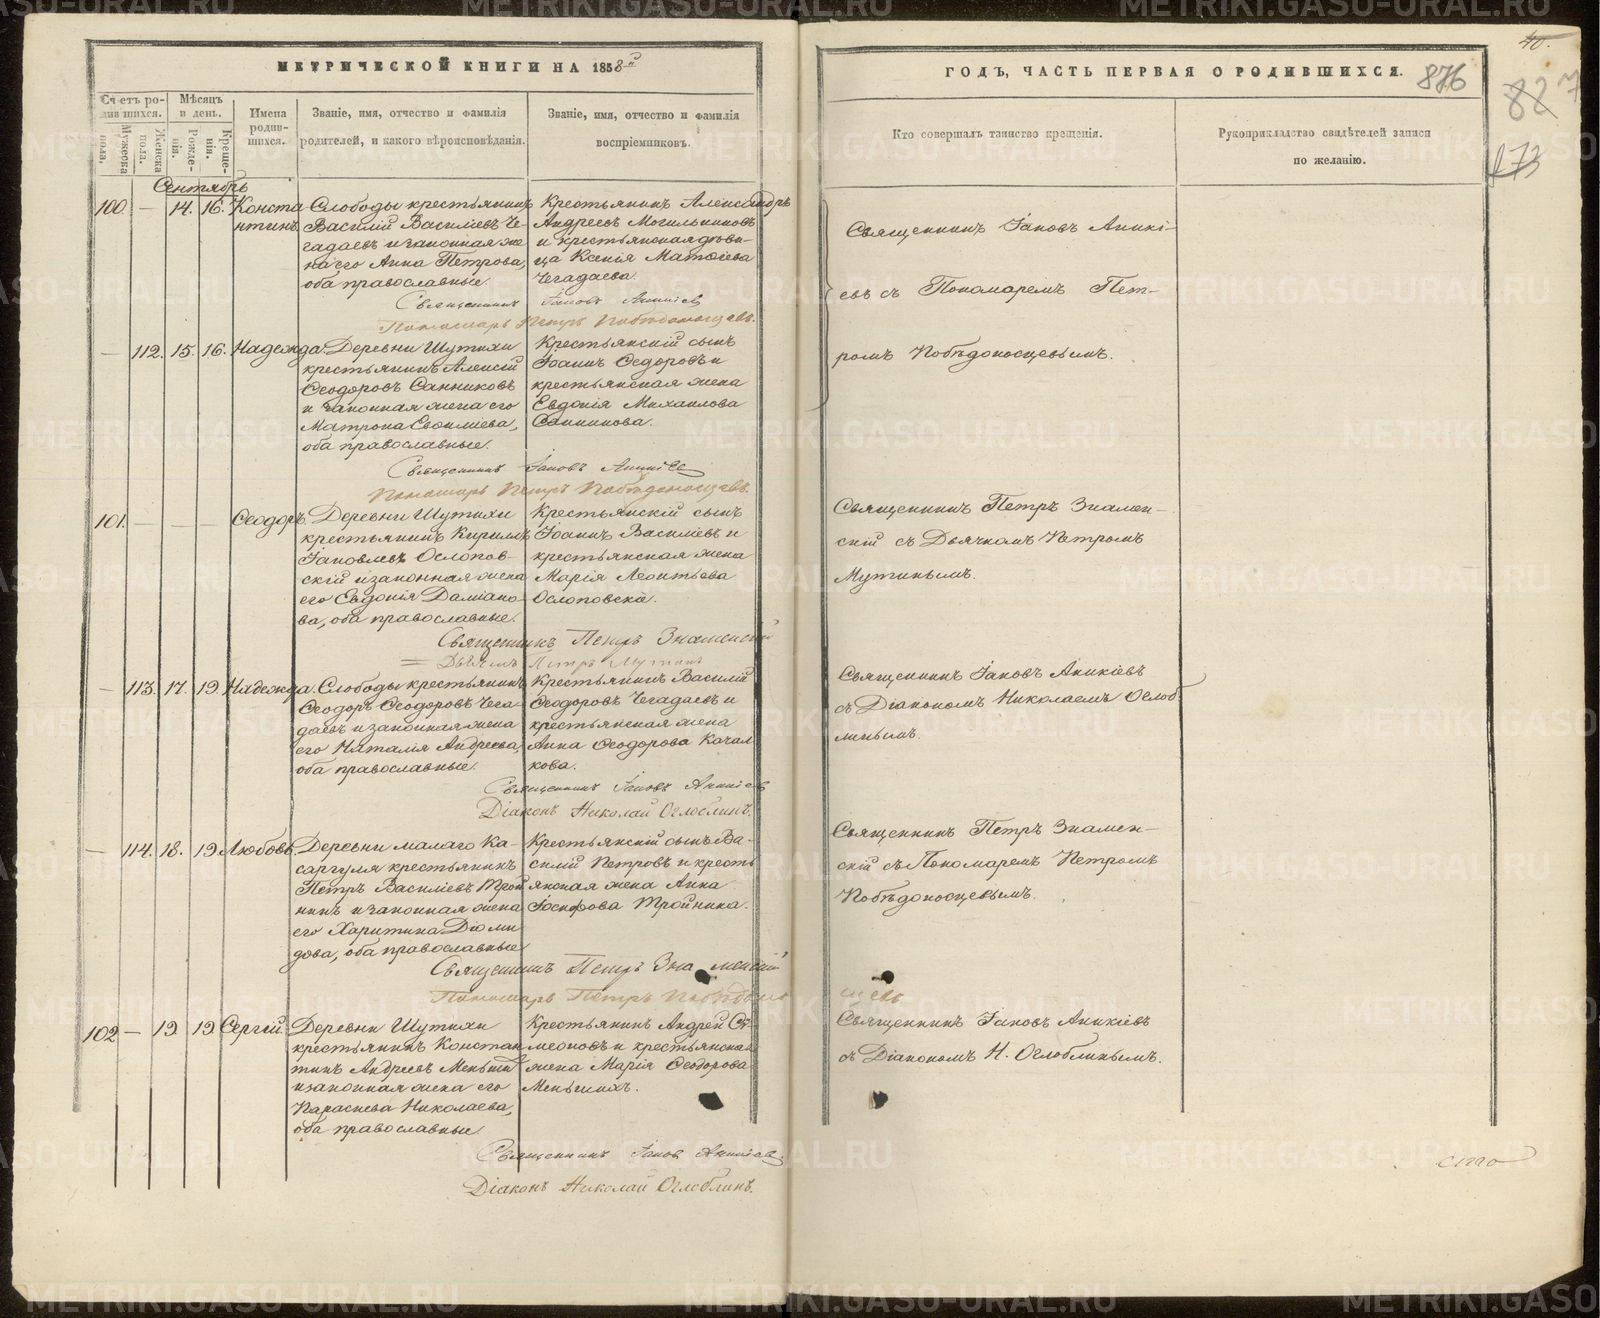 МЕТРИЧЕСКОЙ КНИГИ НА 1858й
Счетъ ро-
дившихся.
Мужеска
пола.
Женска
пола.
Мѣсяцъ
и день.
Рожде-
нія.
Креще-
нія.
Имена
родив-
шихся.
Званіе, имя, отчество и фамилія
родителей, и какого вѣроисповѣданія.
Званіе, имя, отчество и фамилія
воспріемниковъ.
Сентябрь
100. — 14. 16. Конста
нтинъ
Слободы крестьянинъ
Василій Василіевъ Че-
гадаевъ и законная же
на его Анна Петрова,
оба православные.
Крестьянинъ Александръ
Андреевъ Могильниковъ
и крестьянская дѣви-
ца Ксенія Матѳіева
Чегадаева.
Священникъ Іаковъ Аникіев
Пономарь Петръ Побѣдоносцевъ.
— 112. 15. 16. Надежда.
Деревни Шутихи
крестьянинъ Алексій
Ѳеодоровъ Санниковъ
и законная жена его
Матрона
оба православные.
Крестьянскій сынъ
Іоаннъ Ѳедоровъ и
крестьянская жена
Евдокія Михаилова
Санникова.
Священникъ Іаковъ Аникіев
Пономарь Петръ Побѣдоносцевъ.
101. — — — Ѳеодоръ.
Деревни Шутихи
крестьянинъ Кириллъ
Іаковлевъ Ослопов-
скій и законная жена
его Евдокія Даміано-
ва, оба православные.
Крестьянскій сынъ
Іоаннъ Василіевъ и
крестьянская жена
Марія Леонтьева
Ослоповска.
Священникъ Петръ Знаменскій
Дьячекъ Петръ Мутинъ
— 113. 17. 19. Надежда.
Слободы крестьянинъ
Ѳеодоръ Ѳеодоровъ Чега-
даевъ и законная жена
его Наталія Андреева,
оба православные.
Крестьянинъ Василій
Ѳеодоровъ Чегадаевъ и
крестьянская жена
Анна Ѳеодорова Качал
кова.
Священникъ Іаковъ Аникіев
Діаконъ Николай Оглоблинъ.
— 114. 18. 19 Любовь.
Деревни малаго Ка-
саргуля крестьянинъ
Петръ Василіевъ Трой
нинъ и законная жена
его Харитина Діоми
дова, оба православные
Крестьянскій сынъ Ва-
силій Петровъ и кресть
янская жена Анна
Іосифова Тройнина.
Священникъ Петръ Знаменскій
Пономарь Петръ Побѣдоно
102 — 19 19 Сергій.
Деревни Шутихи
крестьянинъ Констан
тинъ Андреевъ Меньши
и законная жена его
Параскева Николаева,
оба православные.
Крестьянинъ Андрей Си-
меоновъ и крестьянская
жена Марія Ѳеодорова
Меньшихъ.
Священникъ Іаков Аникіев
Діаконъ Николай Оглоблинъ.
ГОДЪ, ЧАСТЬ ПЕРВАЯ О РОДИВШИХСЯ.
876
40.
82
173
Кто совершалъ таинство крещенія.
Рукоприкладство свидѣтелей записи
по желанію.
Священникъ Іаковъ Аникі-
евъ съ Пономаремъ Пет-
ромъ Побѣдоносцевымъ.
Священникъ Петръ Знамен-
скій съ Дьячкомъ Петромъ
Мутинымъ.
Священникъ Іаковъ Аникіевъ
съ Діакономъ Николаемъ Оглоб
линымъ.
Священникъ Петръ Знамен-
скій съ Пономаремъ Петромъ
Побѣдоносцевымъ.
сцевъ
Священникъ Іаковъ Аникіевъ
съ Діакономъ Н. Оглоблинымъ.
METRIKI.GASO-URAL.RU